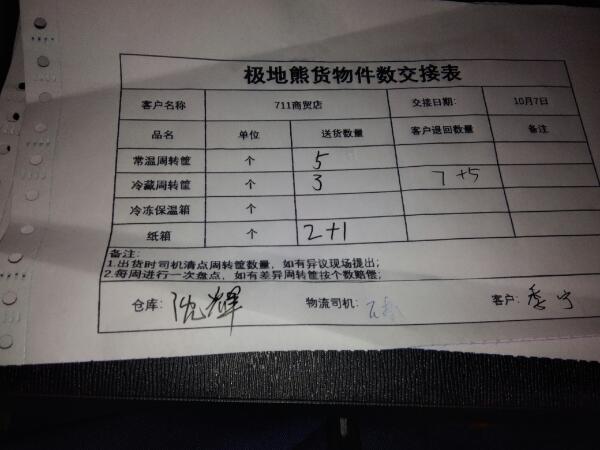 极地熊货物件数交接表
客户名称 711商贸店 交接日期: 10月7日
品名 单位 送货数量 客户退回数量 备注
常温周转筐 个 5
冷藏周转筐 个 3 7+5
冷冻保温箱 个
纸箱 个 2+1
备注:
1.出货时司机清点周转筐数量，如有异议现场提出;
2.每周进行一次盘点，如有差异周转筐按个数赔偿;
仓库: 物流司机: 客户: